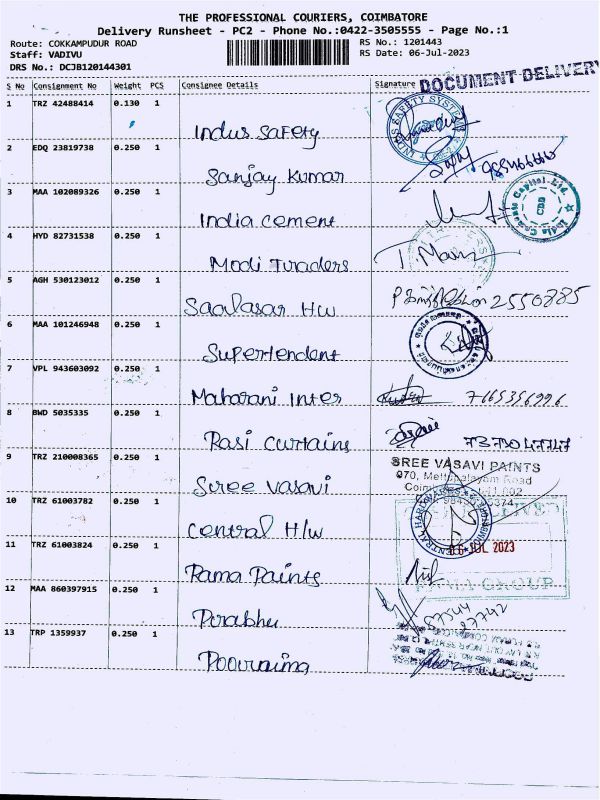 THE PROFESSIONAL COURIERS, COIMBATORE
Delivery Runsheet - PC2 - Phone No.:0422-3505555 - Page No.:1
Route: COKKAMPUDUR ROAD
RS No.: 1201443
Staff: VADIVU
RS Date: 06-Jul-2023
DRS No.: DCJB120144301
S No Consignment No Weight PCS Consignee Details Signature
DOCUMENT DELIVERY
1 TRZ 42488414 0.130 1 Indus Safety
INDUS SAFETY SYSTEMS
2 EDQ 23819738 0.250 1 Sanjay Kumar
3 MAA 102089326 0.250 1 India cement
India Cements Capital Ltd.
CBD
4 HYD 82731538 0.250 1 Modi Traders
T. Mani
5 AGH 530123012 0.250 1 Saalasar H/W
2550885
6 MAA 101246948 0.250 1 Supertendent
7 VPL 943603092 0.250 1 Maharani Inter
8 BWD 5035335 0.250 1 Rasi Curtains
9 TRZ 210008365 0.250 1 Sree Vasavi
SREE VASAVI PAINTS
070, Mettupalayam Road
10 TRZ 61003782 0.250 1 Central H/W
CENTRAL HARDWARES
06 JUL 2023
11 TRZ 61003824 0.250 1 Rama Paints
GROUP
12 MAA 860397915 0.250 1 Prabhu
87544
27742
13 TRP 1359937 0.250 1 Poornima